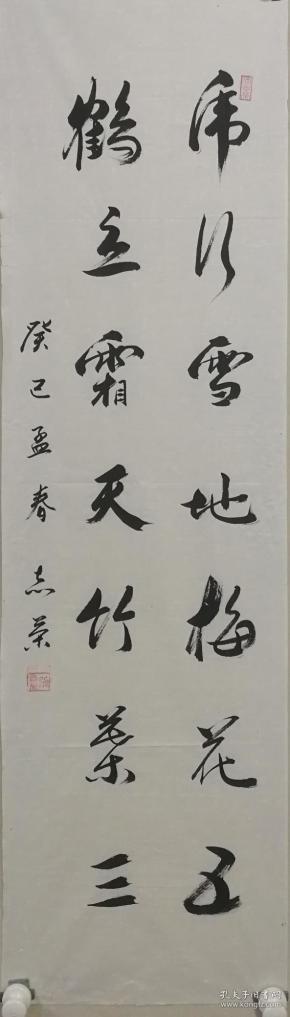 虎行雪地梅花五
鹤立霜天竹葉三
癸巳孟春志荣
孔夫子旧书网